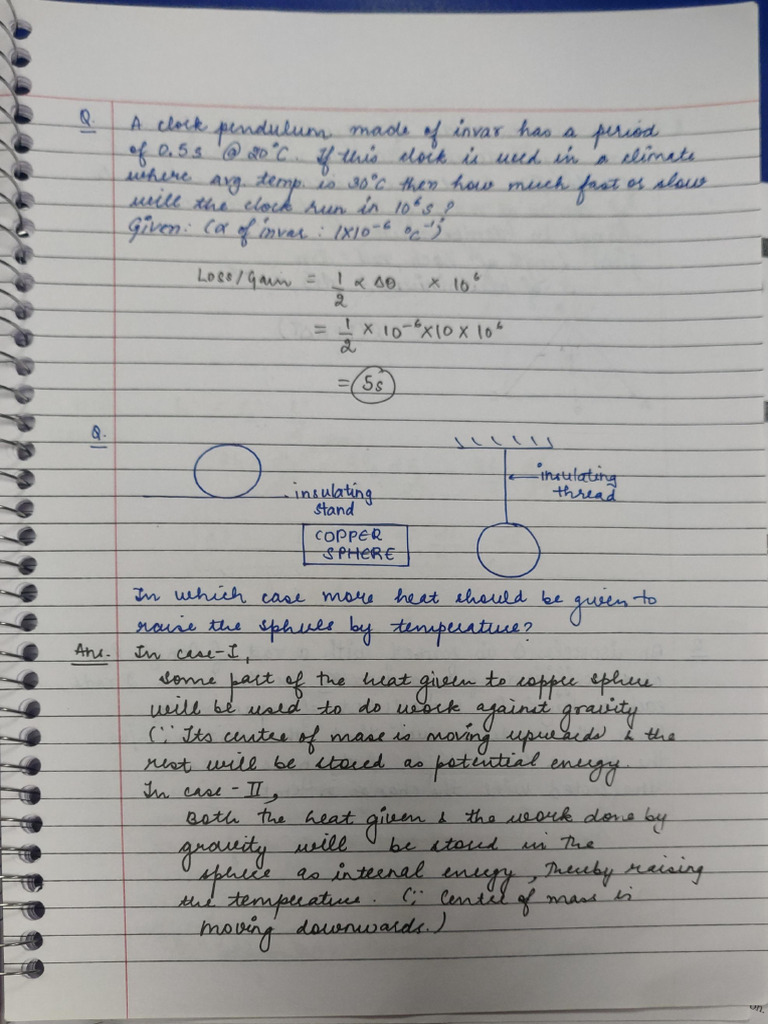 Q. A clock pendulum made of invar has a period
of 0.5s @ 20°C. If this clock is used in a climate
where avg. temp. is 30°C then how much fast or slow
will the clock run in 10⁶s?
Given: (α of invar : 1X10⁻⁶ °C⁻¹)
Loss/Gain = 1/2 α Δθ × 10⁶
= 1/2 × 10⁻⁶ × 10 × 10⁶
= 5s
Q.
insulating
stand
COPPER
SPHERE
insulating
thread
In which case more heat should be given to
raise the spheres by temperature?
Ans. In case-I,
some part of the heat given to copper sphere
will be used to do work against gravity
(∵ Its centre of mass is moving upwards & the
rest will be stored as potential energy.
In case - II,
Both the heat given & the work done by
gravity will be stored in the
sphere as internal energy, thereby raising
the temperature. (∵ centre of mass is
moving downwards.)